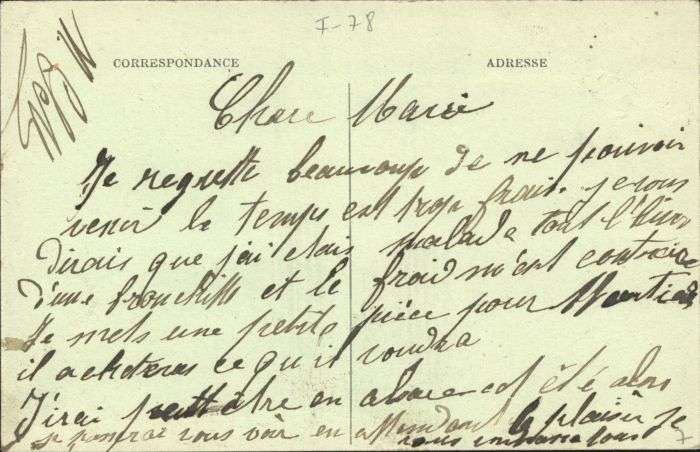 I-78
CORRESPONDANCE
ADRESSE
Chere Marie
Je regrette beaucoup de ne pouvoir
venir le temps est trop frais. je vous
dirais que j'ai etais malade tout l'hiver
d'une bronchite et le froid m'est contraire
Je mets une petite pièce pour
il acheteras ce qu'il voudra
J'irai peutt être en alsace cet été alors
je pourrai vous voir en attendant le plaisir je
vous embrasse tous
7